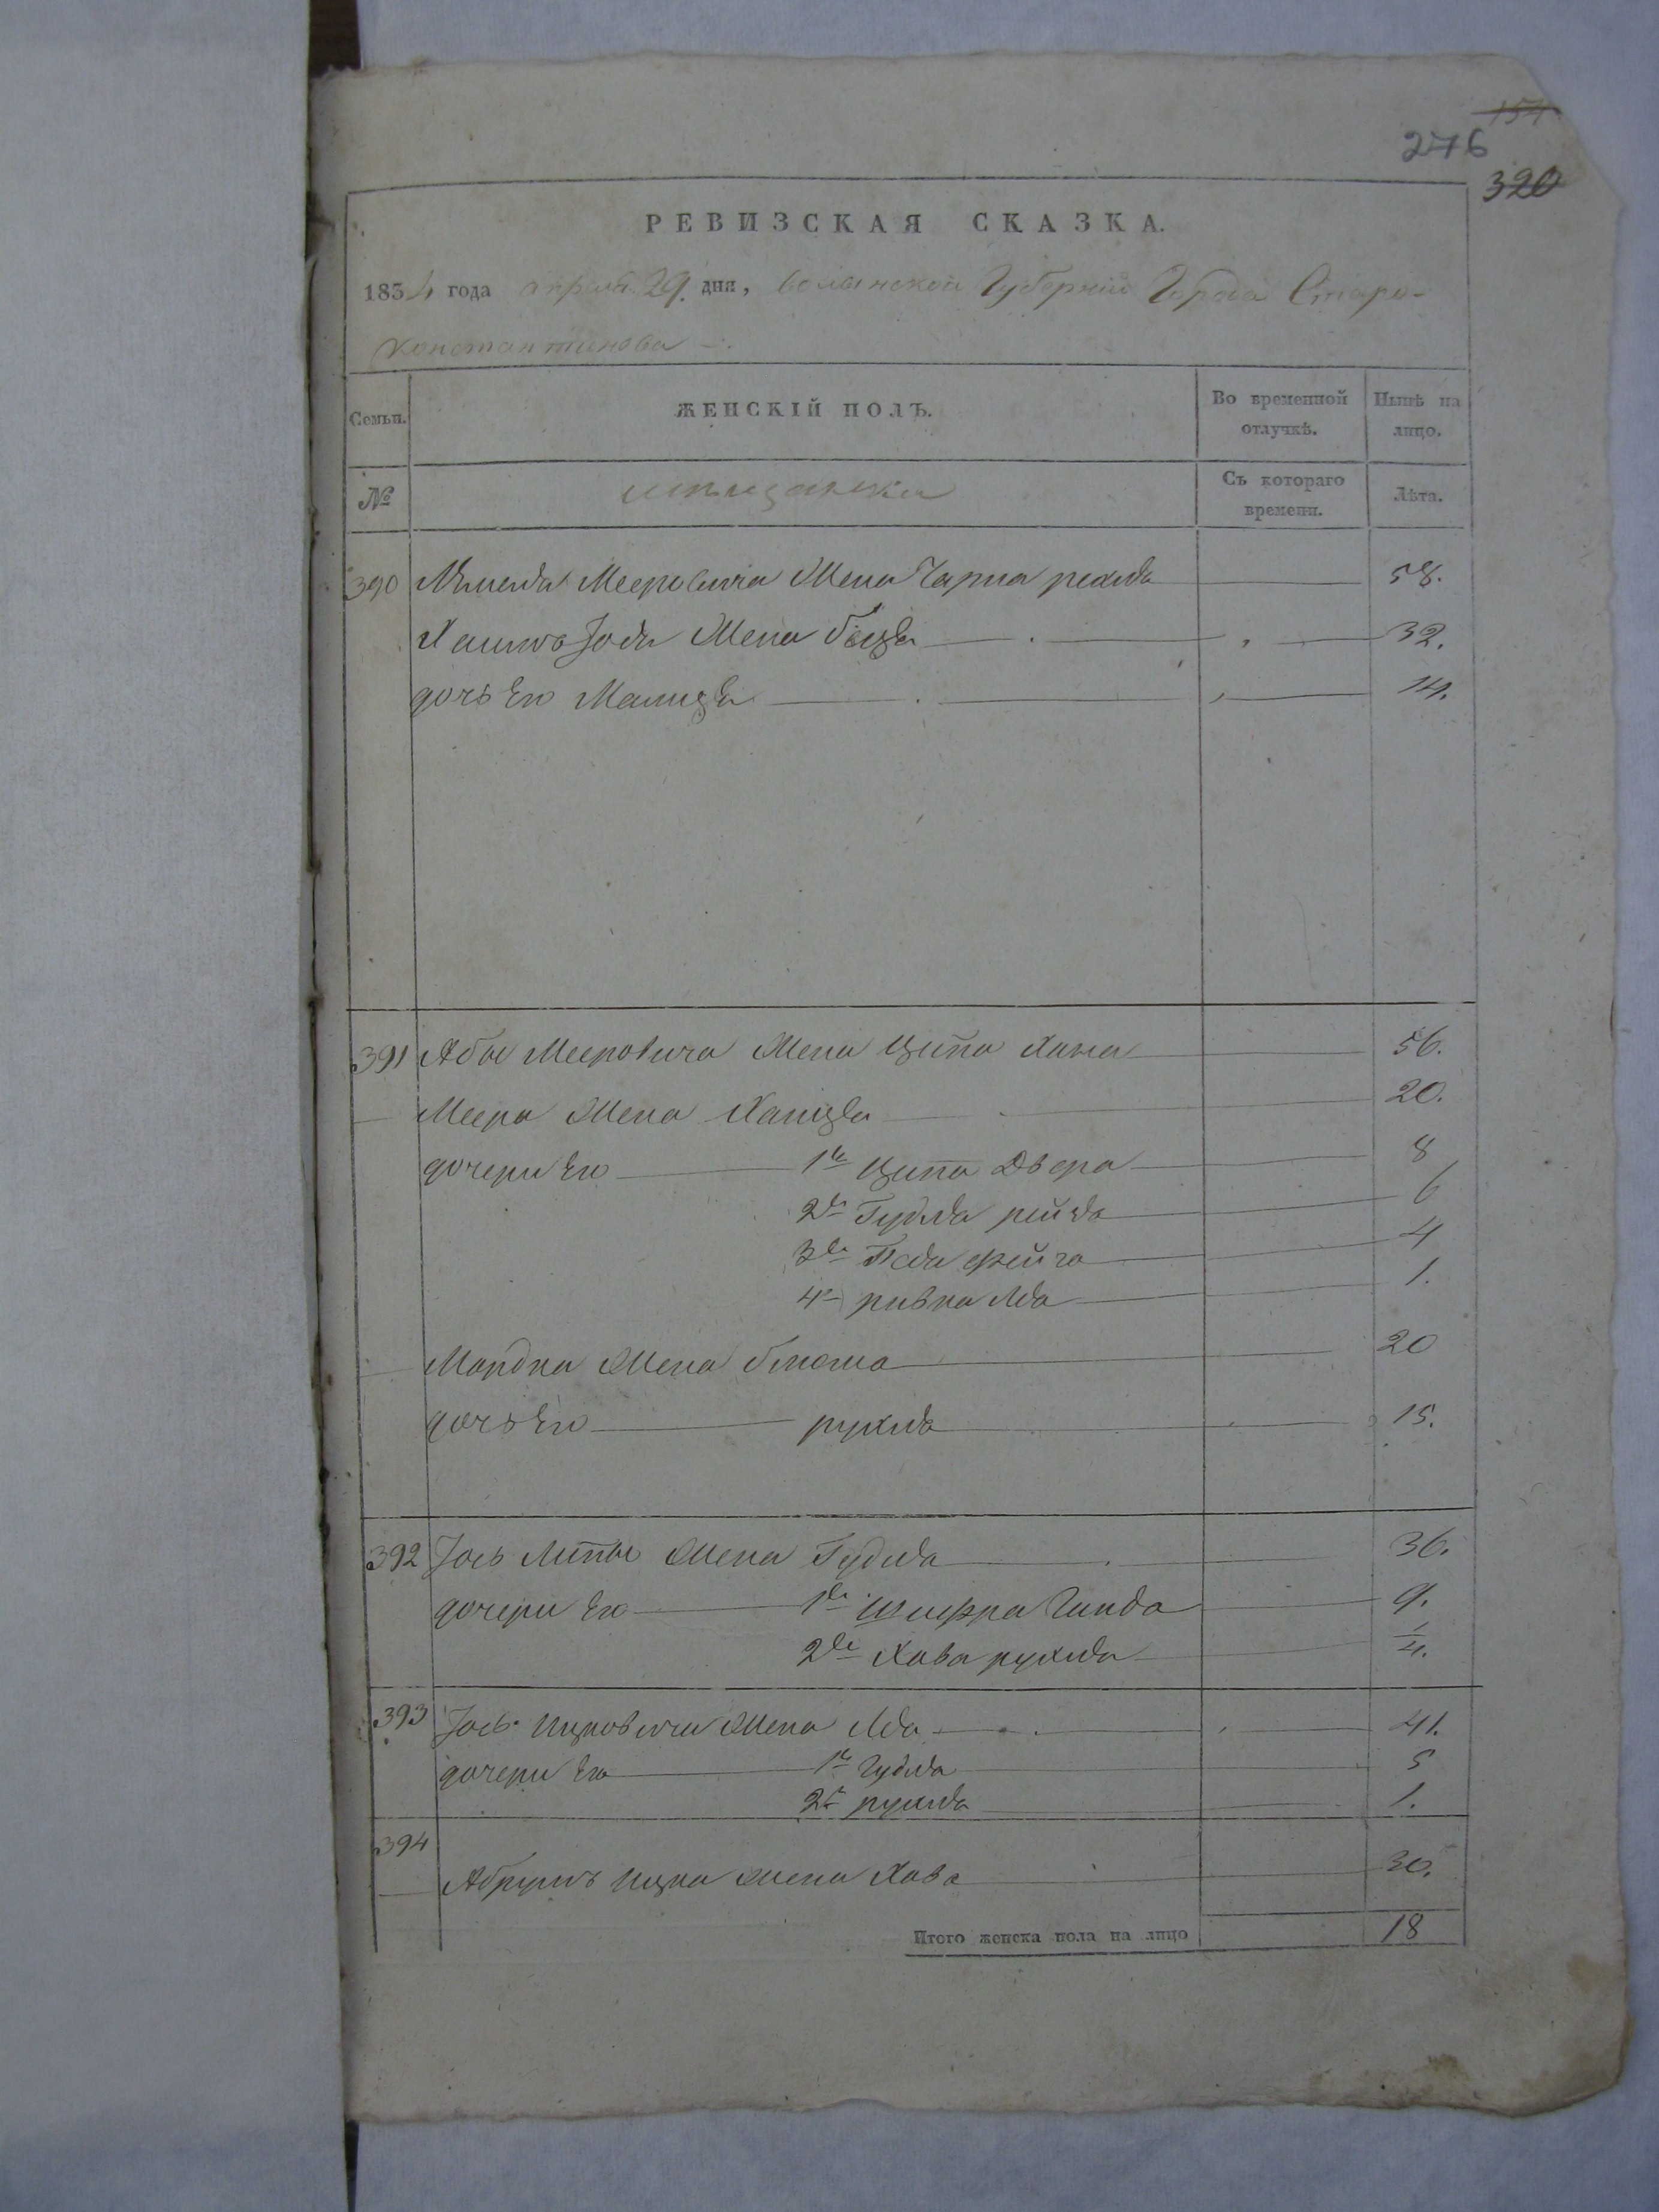 154
276
320
РЕВИЗСКАЯ СКАЗКА.
1834 года апреля 29 дня, волынской Губернии Города Старо-
константинова
Семьи. ЖЕНСКІЙ ПОЛЪ. Во временной отлучкѣ. Нынѣ на лицо.
№ мещанжи Съ котораго времени. Лѣта.
390 Мееровича Жена Чарна рехля 58.
Жена 32.
дочь Его Малця 14.
391 Абы Мееровича Жена Ципа Хана 56.
Меера Жена Ханця 20.
дочери Его 1я Ципа Двера 8
2я Гудля рейзя 6
3я Песя фейга 4
4я ривка Лея 1.
Мордка Жена блюма 20
дочь Его рухля 15.
392 Iось Липы Жена Гудля 36.
дочери Его 1я шифра Гинда 9.
2я Хава рухля 1/4.
393 Iось Ицковича Жена Лея 41.
дочери Его 1я Гудля 5
2я рухля 1.
394
Абрумъ Ицка жена Хава 30.
Итого женска пола на лицо 18